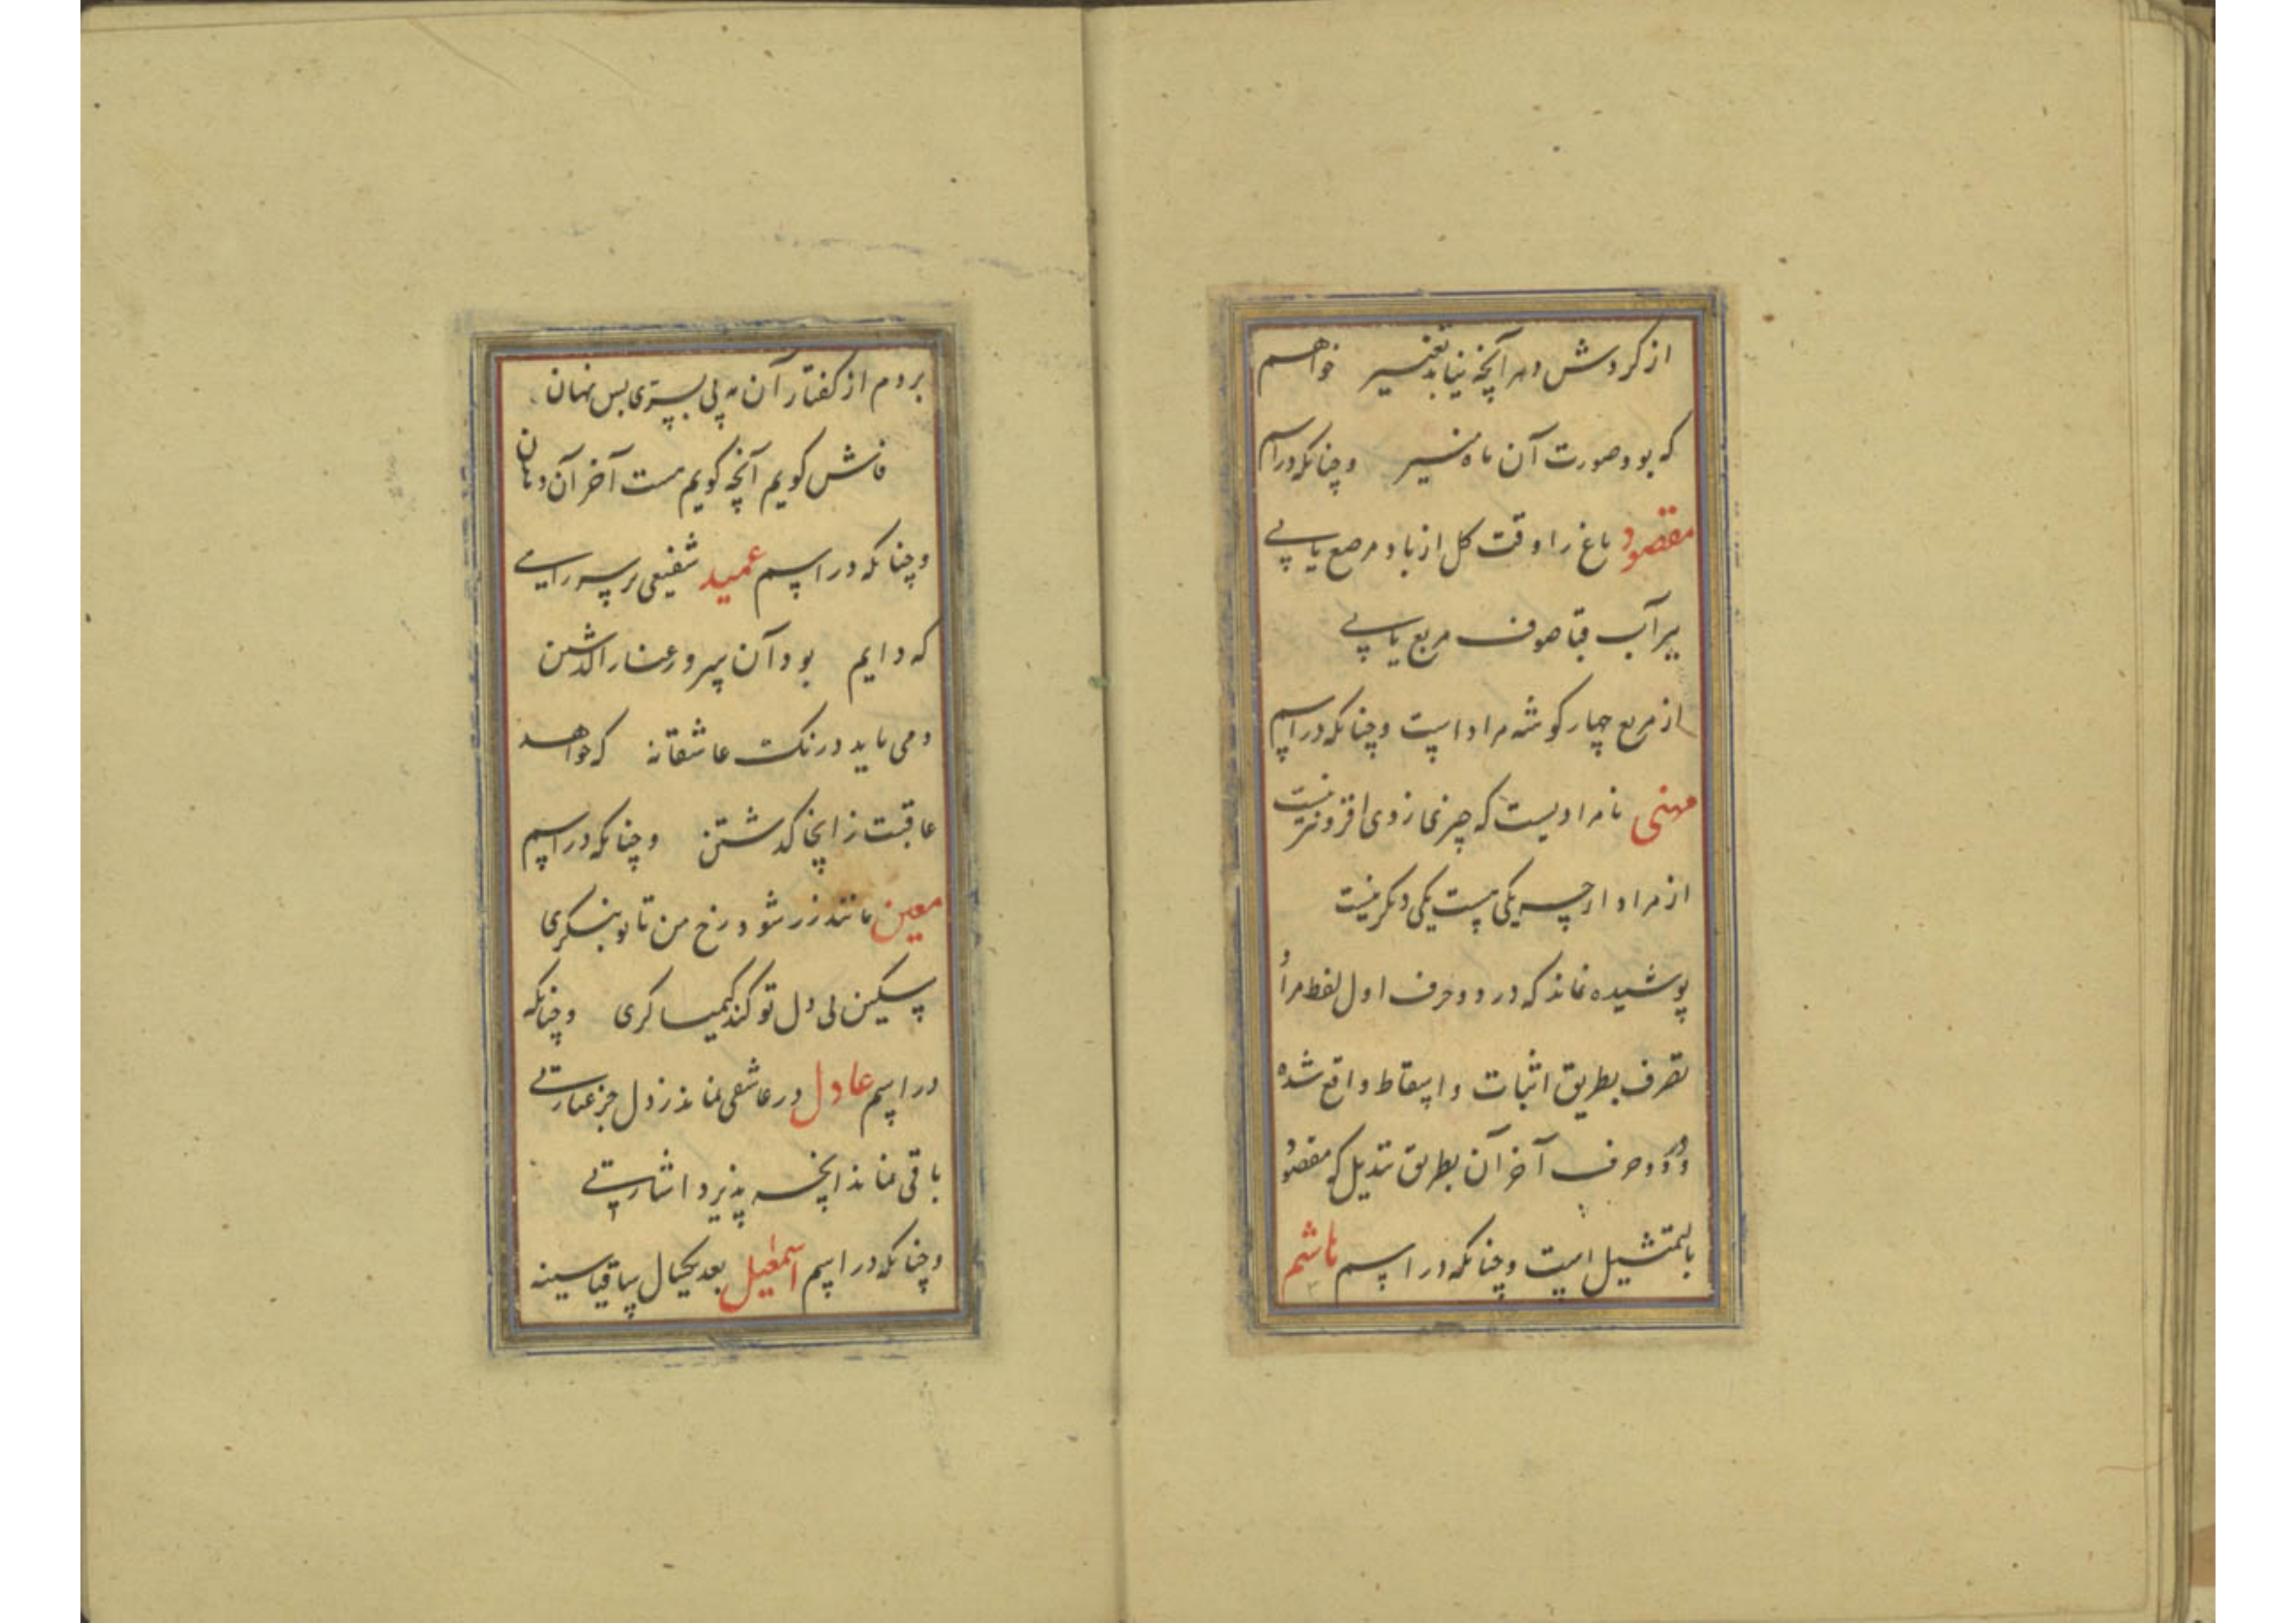 از کردش دهر آنچه نیابد تغییر خواهم
که بود صورت آن ماه منیر وچنانکه در اسم
مقصود باغ را وقت کل از باد مرصع یابی
بر آب قبا صوف مربع یابی
از مربع چهار کوشه مراد است وچنانکه در اسم
مهنی نامرادیست که چیزی ازوی افزونتر نیست
از مراد ارچه یکی هست یکی دیکر نیست
پوشیده نماند که در دو حرف اول لفط مراد
تصرف بطریق اثبات واسقاط واقع شده
ودر دو حرف آخر آن بطریق تبدیل که مقصود
بالتمثیل است وچنانکه در اسم هاشم
بردم از کفتار آن مه پی بسری بس نهان
فاش کویم آنچه کویم هست آخر آن دهان
وچنانکه در اسم عمید شفیعی بر سر راهی
که دایم بود آن سرو رعنا را کذشتن
دمی باید درنکت عاشقانه که خواهد
عاقبت ز اینجا کذشتن وچنانکه در اسم
معین مانند زر شود رخ من تا تو بنکری
سکین لی دل تو کند کیمیا کری وچنانکه
در اسم عادل در عاشقی نماند ز دل جز عبارتی
باقی نماند انچه پذیرد اشارتی
وچنانکه در اسم اسمعیل بعد یکچیال ساقیا سینه